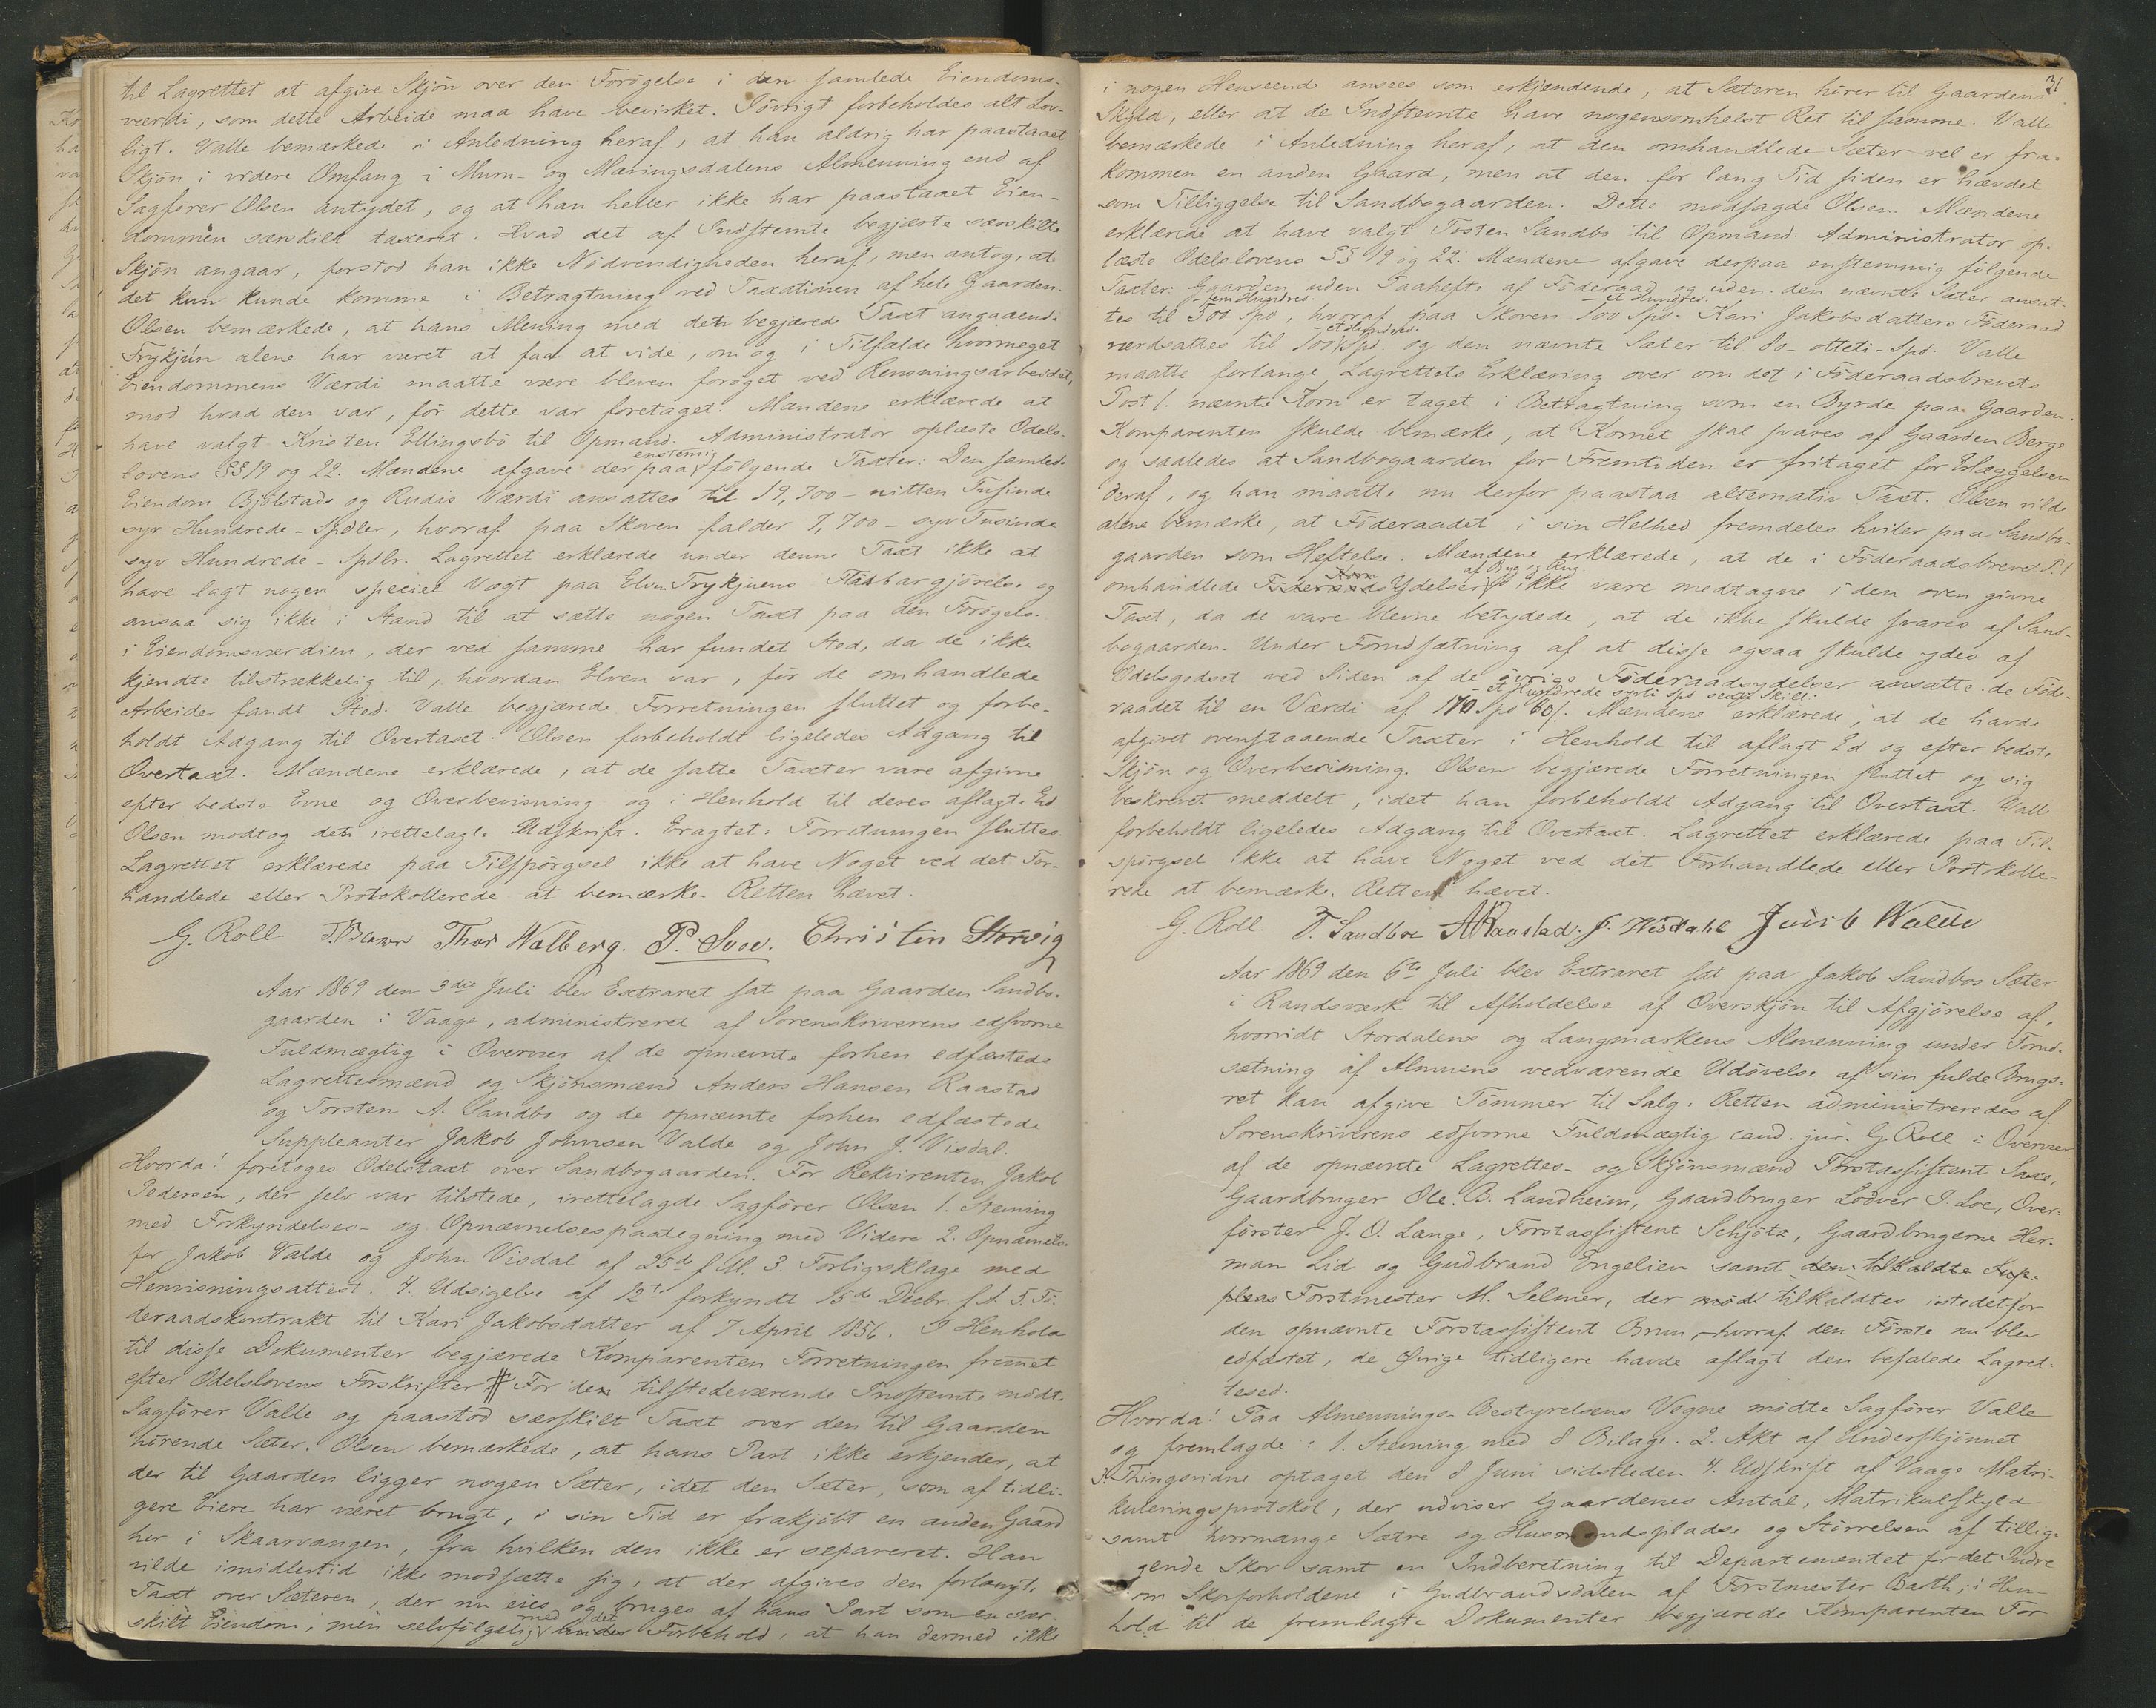 til Lagrettet at afgive Skjön over den Forögelse i den samlede Eiendoms-
værdi, som dette Arbeide maa have bevirket. Iövrigt forbeholdes alt Lov-
ligt. Valle bemærkede i Anledning heraf, at han aldrig har paastaaet
Skjön i videre Omfang i Murn- og Mæringsdalens Almenning end af
Sagförer Olsen antydet, og at han heller ikke har paastaaet Eien-
dommen særskilt taxeret. Hvad det af Indstemte begjærte særskilte
Skjön angaar, forstod han ikke Nödvendigheden heraf, men antog, at
det kun kunde komme i Betragtning ved Taxationen af hele Gaarden.
Olsen bemærkede, at hans Mening med den begjærede Taxt angaaende
Trykjun alene har været at faa at vide, om og i Tilfælde hvormeget
Eiendommens Værdi maatte være bleven foröget ved Rensningsarbeidet,
mod hvad den var, för dette var foretaget. Mændene erklærede at
have valgt Kristen Ellingsbö til Opmand. Administrator oplæste Odels-
lovens §§ 19 og 22. Mændene afgave derpaa enstemig fölgende Taxter: Den samlede
Eiendom Bjölstads og Rudis Værdi ansattes til 19,700 - nitten Tusinde
syv Hundrede - Spdler, hvoraf paa Skoven falder 7,700 - syv Tusinde
syv Hundrede - Spdlr. Lagrettet erklærede under denne Taxt ikke at
have lagt nogen speciel Vægt paa Elven Trykjuens Flåtbargjörelse og
ansaa sig ikke i Stand til at sætte nogen Taxt paa den Forögelse
i Eiendomsværdien, der ved samme har fundet Sted, da de ikke
kjendte tilstrækkelig til, hvordan Elven var, för de omhandlede
Arbeider fandt Sted. Valle begjærede Forretningen sluttet og forbe-
holdt Adgang til Overtaxt. Olsen forbeholdt ligeledes Adgang til
Overtaxt. Mændene erklærede, at de satte Taxter vare afgivne
efter bedste Evne og Overbevisning og i Henhold til deres aflagte Ed.
Olsen modtog det irettelagte Udskrift. Eragtet: Forretningen sluttes.
Lagrettet erklærede paa Tilspörgsel ikke at have Noget ved det For-
handlede eller Protokollerede at bemærke. Retten hævet.
G. Roll Thor Walberg. P. Svee. Christen Storvig
Aar 1869 den 3die Juli blev Extraret sat paa Gaarden Sandbo-
gaarden i Vaage, administreret af Sorenskriverens edsvorne
Fuldmægtig i Overvær af de opnævnte forhen edfæstede
Lagrettesmænd og Skjönsmænd Anders Hansen Raastad
og Torsten A. Sandbo og de opnævnte forhen edfæstede
Suppleanter Jakob Johnsen Valde og John J. Visdal.
Hvorda! foretoges Odelstaxt over Sandbogaarden. For Rekvirenten Jakob
Pedersen, der selv var tilstede, irettelagde Sagförer Olsen 1. Stevning
med Forkyndelses- og Opnævnelsespaategning med Videre 2. Opnævnelse
for Jakob Valde og John Visdal af 25de f. M. 3. Forligsklage med
Henvisningsattest. 4. Udsigelse af 12te forkyndt 15de Decbr. f. A. 5. Fö-
deraadskontrakt til Kari Jakobsdatter af 7 April 1856. I Henhold
til disse Dokumenter begjærede Komparenten Forretningen fremmet
efter Odelslovens Forskrifter. # For den tilstedeværende Indstemte mödte
Sagförer Valle og paastod særskilt Taxt over den til Gaarden
hörende Sæter. Olsen bemærkede, at hans Part ikke erkjender, at
der til Gaarden ligger nogen Sæter, idet den Sæter, som af tidli-
gere Eiere har været brugt, i sin Tid er frakjöbt en anden Gaard
her i Skaarvangen, fra hvilken den ikke er separeret. Han
vilde imidlertid ikke modsætte sig, at der afgives den forlangte
Taxt over Sæteren, der nu eies og bruges af hans Part som en sær-
skilt Eiendom, men selvfölgelig med det under Forbehold, at han dermed ikke
31
i nogen Henseende ansees som erkjendende, at Sæteren hörer til Gaardens
Skyld, eller at de Indstemte have nogensomhelst Ret til samme. Valle
bemærkede i Anledning heraf, at den omhandlede Sæter vel er fra-
kommen en anden Gaard, men at den for lang Tid siden er hævdet
som Tilliggelse til Sandbogaarden. Dette modsagde Olsen. Mændene
erklærede at have valgt Tosten Sandbo til Opmand. Administrator op-
læste Odelslovens §§ 19 og 22. Mændene afgave derpaa enstemmig fölgende
Taxter: Gaarden uden Paahefte af Föderaad og uden den nævnte Sæter ansat-
tes til 500 - fem Hundred. Spd, hvoraf paa Skoven 100 - et Hundred. Spd. Kari Jakobsdatters Föderaad
værdsattes til 100 - et Hundred. Spd. og den nævnte Sæter til 80 - otteti - Spd. Valle
maatte forlange Lagrettets Erklæring over om det i Föderaadsbrevets
Post 1. nævnte Korn er taget i Betragtning som en Byrde paa Gaarden.
Komparenten skulde bemærke, at Kornet skal svares af Gaarden Berge
og saaledes at Sandbogaarden for Fremtiden er fritaget for Erlæggelsen
deraf, og han maatte nu derfor paastaa alternativ Taxt. Olsen vilde
alene bemærke, at Föderaadet i sin Helhed fremdeles hviler paa Sandbo-
gaarden som Heftelse. Mændene erklærede, at de i Föderaadsbrevet P. 1
omhandlede Föderaads Korn Ydelser af Byg og Rug ikke vare medtagne i den oven givne
Taxt, da de vare blevne betydede, at de ikke skulde svares af Sand-
bogaarden. Under Forudsætning af at disse ogsaa skulde ydes af
Odelsgodset ved Siden af de övrige Föderaadsydelser ansatte de Föde-
raadet til en Værdi af 170 Spd 60 s. Mændene erklærede, at de havde
afgivet ovenstaaende Taxter i Henhold til aflagt Ed og efter bedste
Skjön og Overbevisning. Olsen begjærede Forretningen sluttet og sig
beskrevet meddelt, idet han forbeholdt Adgang til Overtaxt. Valle
forbeholdt ligeledes Adgang til Overtaxt. Lagrettet erklærede paa Til-
spörgsel ikke at have Noget ved det Forhandlede eller Protokolle-
rede at bemærke. Retten hævet.
G. Roll. T. Sandboe A H Raastad. J. Wisdahl Jacob Walde
Aar 1869 den 6te Juli blev Extraret sat paa Jakob Sandbos Sæter
i Randsværk til Afholdelse af Overskjön til Afgjörelse af,
hvorvidt Stordalens og Langmarkens Almenning under Forud-
sætning af Almuens vedvarende Udövelse af sin fulde Brugs-
ret kan afgive Tömmer til Salg. Retten administreredes af
Sorenskriverens edsvorne Fuldmægtig cand. jur. G. Roll i Overvær
af de opnævnte Lagrettes- og Skjönsmænd Forstassistent Saxe,
Gaardbruger Ole B. Landheim, Gaardbruger Lodver I. Loe, Over-
förster J. O. Lange, Forstassistent Schjötz, Gaardbrugerne Her-
man Lid og Gudbrand Engelien samt den tilkaldte Sup-
pleas Forstmester M. Selmer, der mödte tilkaldtes istedetfor
den opnævnte Forstassistent Brun, - hvoraf den Förste nu blev
edfæstet, de Övrige tidligere havde aflagt den befalede Lagret-
tesed.
Hvorda! Paa Almennings-Bestyrelsens Vegne mödte Sagförer Valle
og fremlagde: 1. Stevning med 8 Bilage. 2. Akt af Underskjönnet
3. Thingsvidne optaget den 8 Juni sidstleden 4. Udskrift af Vaage Matri-
kuleringsprotokol, der udviser Gaardenes Antal, Matrikulskyld
samt hvormange Sætre og Husmandspladse og Störrelsen af tillig-
gende Skov samt en Indberetning til Departementet for det Indre
om Skovforholdene i Gudbrandsdalen af Forstmester Barth; i Hen-
hold til de fremlagte Dokumenter begjærede Komparenten For